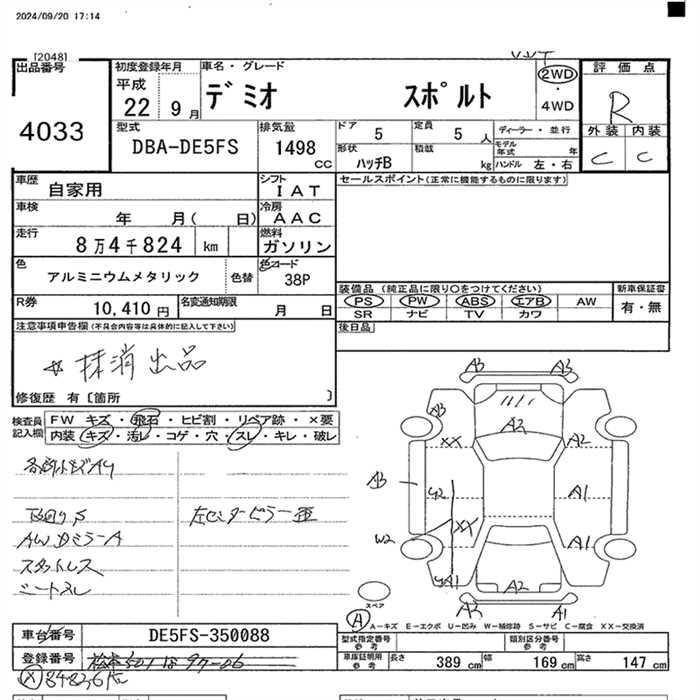 2024/09/20 17:14
[2048]
出品番号
4033
初度登録年月
平成
22 9月
車名・グレード
デミオ スポルト
2WD
・
4WD
評価点
R
外装 内装
C C
型式
DBA-DE5FS
排気量
1498
CC
ドア
5
定員
5 人
形状
ハッチB
積載
kg
ディーラー・並行
モデル年式 年
ハンドル 左・右
車歴
自家用
シフト
IAT
セールスポイント(正常に機能するものに限ります)
車検
年 月( 日)
冷房
AAC
走行
8万4千824 km
燃料
ガソリン
色
アルミニウムメタリック
色替
色コード
38P
装備品(純正品に限り○をつけてください)
PS PW ABS エアB AW
SR ナビ TV カワ
新車保証書
有・無
R券
10,410円
名変通知期限
月 日
後日品
注意事項申告欄(不具合内容等は具体的に記入して下さい)
☆抹消出品
修復歴 有〔箇所 〕
検査員記入欄
FW キズ・飛石・ヒビ割・リペア跡・×要
内装 キズ・汚レ・コゲ・穴・スレ・キレ・破レ
下回りS
左センターピラー歪
AWカミラーA
シートスレ
A3 A3
A3
A2
XX A2
A3
Y2
A1
W2
XX
A1
A1
A2
U3 A1
スペア
A
A－キズ E－エクボ U－凹み W－補修跡 S－サビ C－腐食 XX－交換済
車台番号
DE5FS-350088
型式指定番号
参考
類別区分番号
参考
登録番号
車庫証明用
参考
長さ 389 cm
幅 169 cm
高さ 147 cm